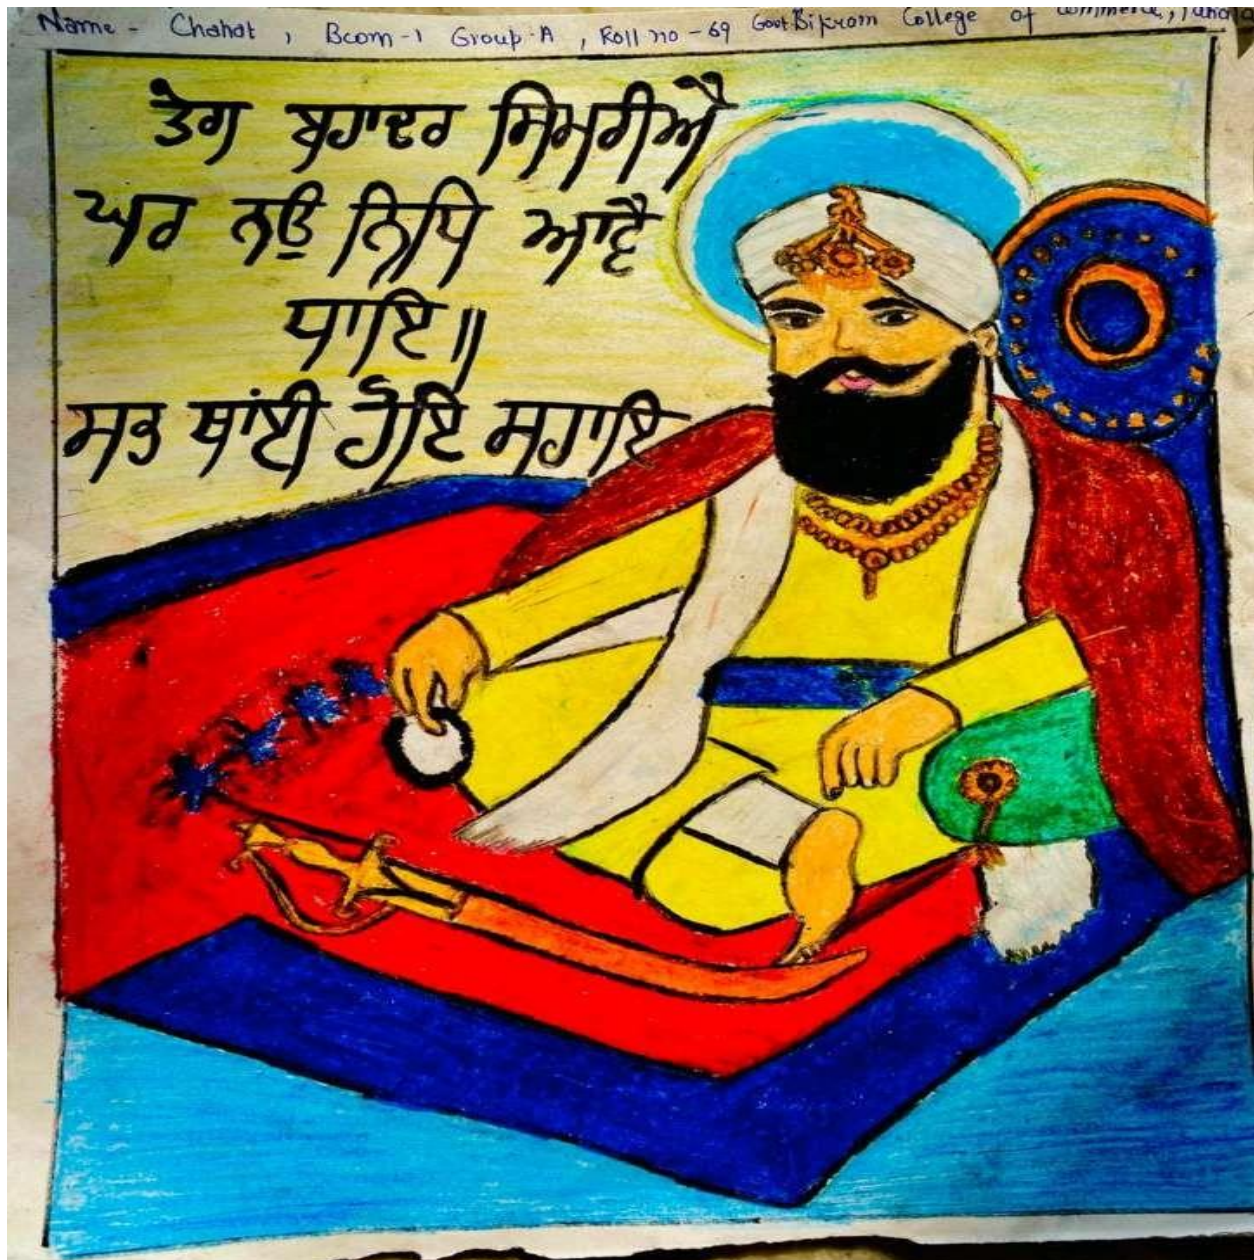 Name - Chahat, Bcom-1 Group-A, Roll no - 69 Govt Bikram College of Commerce,
ਤੇਗ ਬਹਾਦਰ ਸਿਮਰੀਐ
ਘਰ ਨਉ ਨਿਧਿ ਆਵੈ
ਧਾਇ॥
ਸਭ ਥਾਂਈ ਹੋਇ ਸਹਾਇ